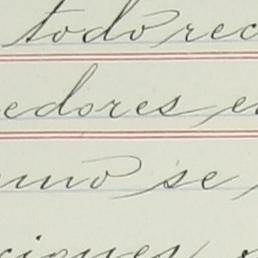 todo rec
edores e
mo se
ciones